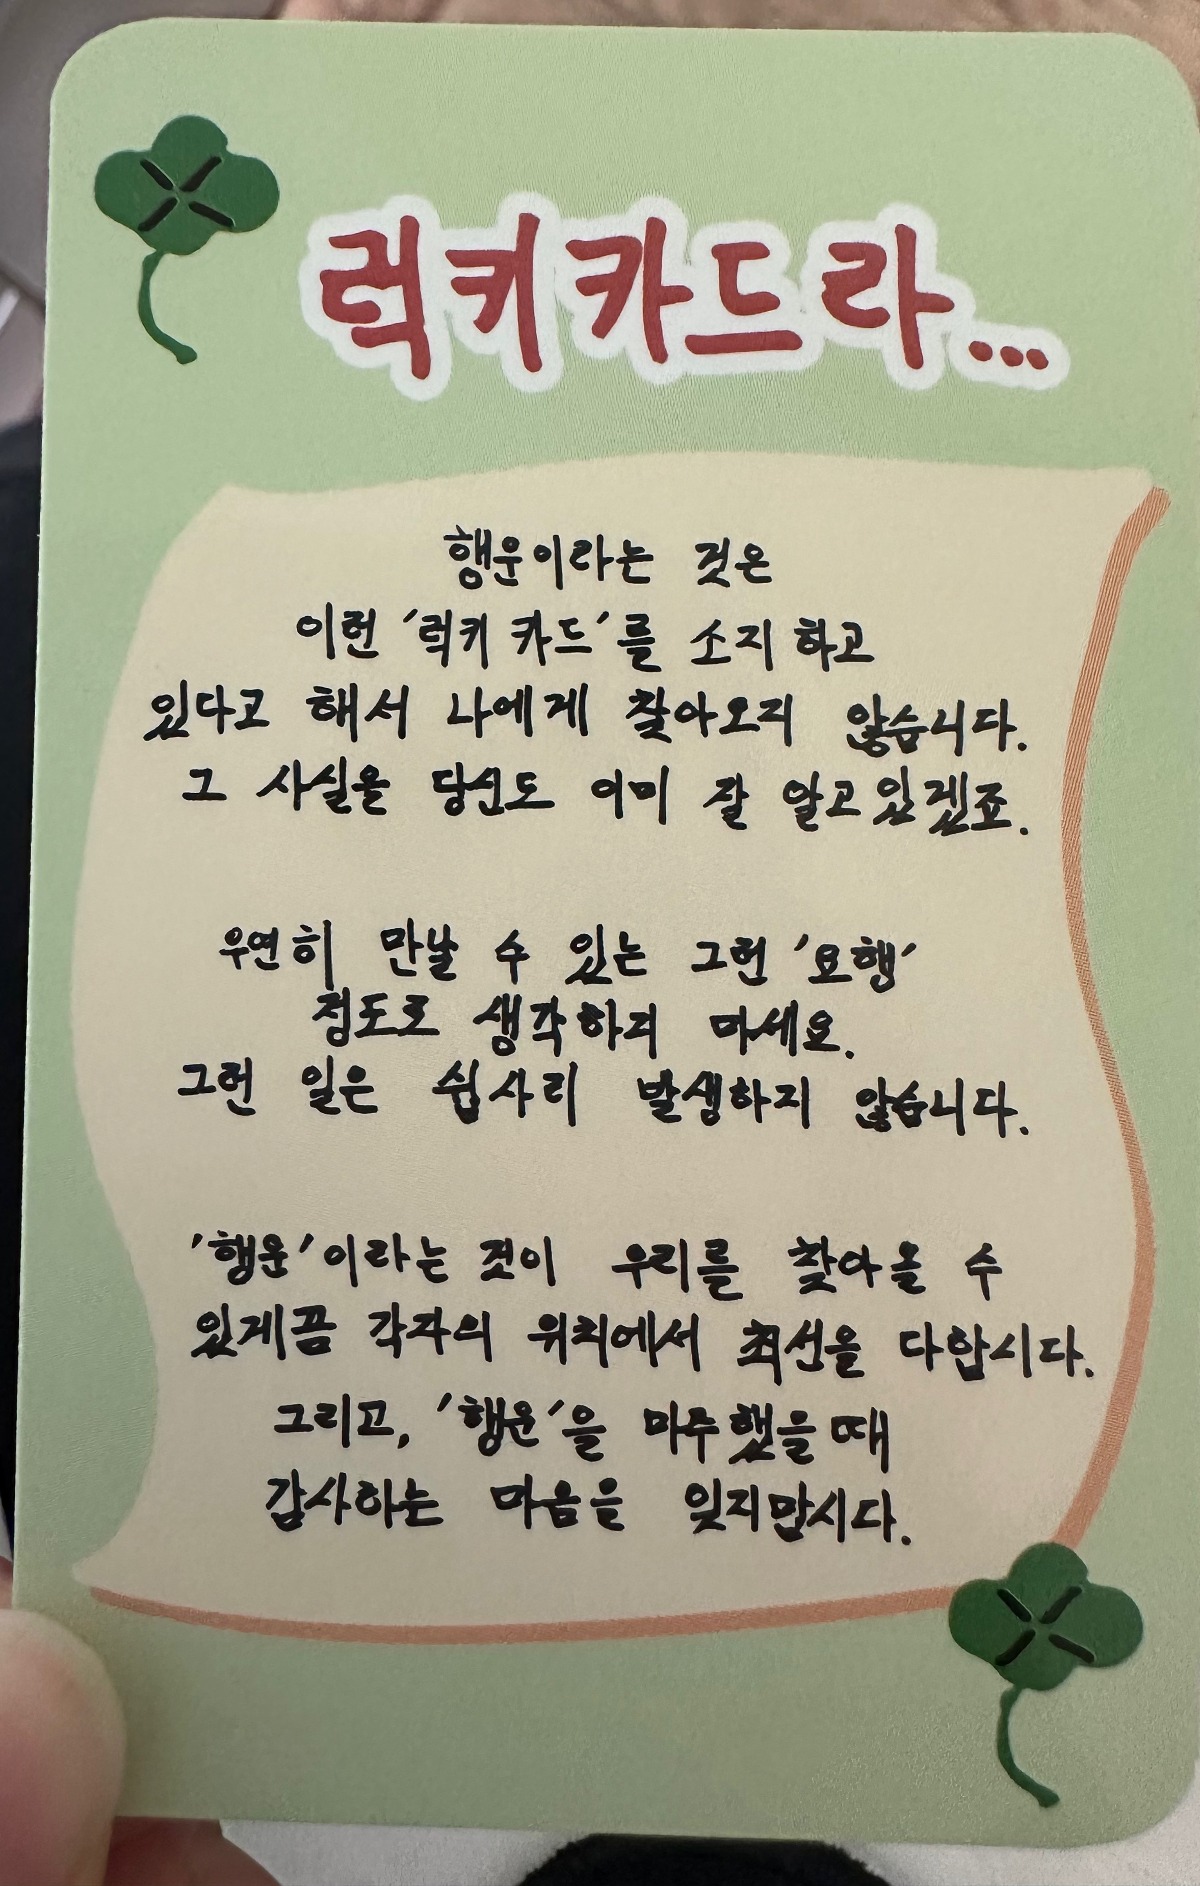 럭키카드라...
행운이라는 것은
이런 '럭키 카드'를 소지하고
있다고 해서 나에게 찾아오지 않습니다.
그 사실을 당신도 이미 잘 알고있겠죠.
우연히 만날 수 있는 그런 '요행'
정도로 생각하지 마세요.
그런 일은 쉽사리 발생하지 않습니다.
'행운'이라는 것이 우리를 찾아올 수
있게끔 각자의 위치에서 최선을 다합시다.
그리고, '행운'을 마주했을때
감사하는 마음을 잊지맙시다.